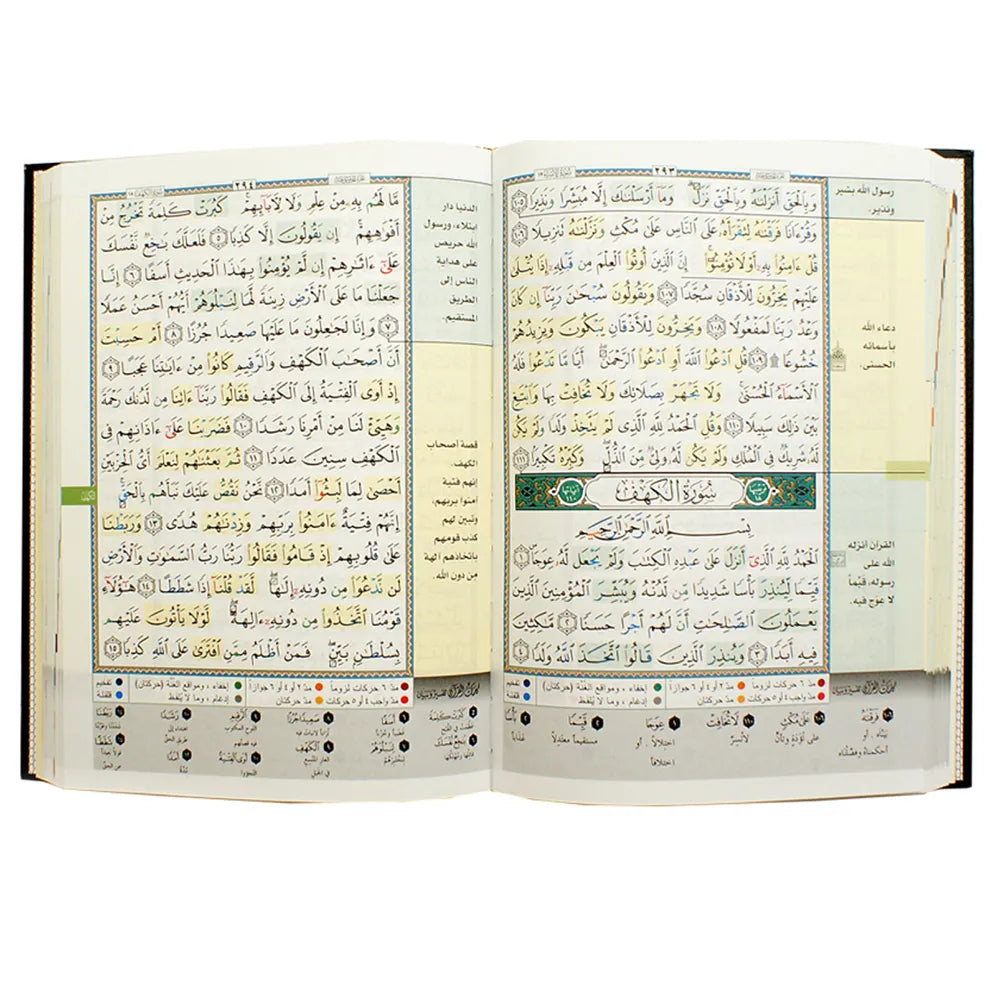 سورة الإسراء ١٧
٢٩٣
وَبِٱلْحَقِّ أَنزَلْنَٰهُ وَبِٱلْحَقِّ نَزَلَ ۗ وَمَآ أَرْسَلْنَٰكَ إِلَّا مُبَشِّرًا وَنَذِيرًا ١٠٥
وَقُرْءَانًا فَرَقْنَٰهُ لِتَقْرَأَهُۥ عَلَى ٱلنَّاسِ عَلَىٰ مُكْثٍ وَنَزَّلْنَٰهُ تَنزِيلًا ١٠٦
قُلْ ءَامِنُوا۟ بِهِۦٓ أَوْ لَا تُؤْمِنُوٓا۟ ۚ إِنَّ ٱلَّذِينَ أُوتُوا۟ ٱلْعِلْمَ مِن قَبْلِهِۦٓ إِذَا يُتْلَىٰ
عَلَيْهِمْ يَخِرُّونَ لِلْأَذْقَانِ سُجَّدًا ١٠٧ وَيَقُولُونَ سُبْحَٰنَ رَبِّنَآ إِن كَانَ
وَعْدُ رَبِّنَا لَمَفْعُولًا ١٠٨ وَيَخِرُّونَ لِلْأَذْقَانِ يَبْكُونَ وَيَزِيدُهُمْ
خُشُوعًا ۩ ١٠٩ قُلِ ٱدْعُوا۟ ٱللَّهَ أَوِ ٱدْعُوا۟ ٱلرَّحْمَٰنَ ۖ أَيًّا مَّا تَدْعُوا۟ فَلَهُ
ٱلْأَسْمَآءُ ٱلْحُسْنَىٰ ۚ وَلَا تَجْهَرْ بِصَلَاتِكَ وَلَا تُخَافِتْ بِهَا وَٱبْتَغِ
بَيْنَ ذَٰلِكَ سَبِيلًا ١١٠ وَقُلِ ٱلْحَمْدُ لِلَّهِ ٱلَّذِى لَمْ يَتَّخِذْ وَلَدًا وَلَمْ يَكُن
لَّهُۥ شَرِيكٌ فِى ٱلْمُلْكِ وَلَمْ يَكُن لَّهُۥ وَلِىٌّ مِّنَ ٱلذُّلِّ ۖ وَكَبِّرْهُ تَكْبِيرًۢا ١١١
سُورَةُ الكَهْفِ
بِسْمِ ٱللَّهِ ٱلرَّحْمَٰنِ ٱلرَّحِيمِ
ٱلْحَمْدُ لِلَّهِ ٱلَّذِىٓ أَنزَلَ عَلَىٰ عَبْدِهِ ٱلْكِتَٰبَ وَلَمْ يَجْعَل لَّهُۥ عِوَجَاۜ ١
قَيِّمًا لِّيُنذِرَ بَأْسًا شَدِيدًا مِّن لَّدُنْهُ وَيُبَشِّرَ ٱلْمُؤْمِنِينَ ٱلَّذِينَ
يَعْمَلُونَ ٱلصَّٰلِحَٰتِ أَنَّ لَهُمْ أَجْرًا حَسَنًا ٢ مَّٰكِثِينَ
فِيهِ أَبَدًا ٣ وَيُنذِرَ ٱلَّذِينَ قَالُوا۟ ٱتَّخَذَ ٱللَّهُ وَلَدًا ٤
رسول الله بشير
ونذير.
دعاء الله
بأسمائه
الحسنى.
القرآن أنزله
الله على
رسوله، قيّماً
لا عوج فيه.
مدّ ٦ حركات لزوماً مدّ ٢ أو ٤ أو ٦ جوازاً إخفاء، ومواقع الغُنَّة (حركتان) تفخيم
مدّ واجب ٤ أو ٥ حركات مدّ حركتان إدغام، وما لا يُلفَظ قلقلة
١٠٦ فَرَقْنَٰهُ
بيّنّاه، أو
أحكمناه وفصّلناه
١٠٦ عَلَىٰ مُكْثٍ
على تُؤَدةٍ وتأنٍّ
١١٠ لَا تُخَافِتْ
لا تُسِرّ
١ عِوَجًا
اختلالاً، أو
اختلافاً
٢ قَيِّمًا
مستقيماً معتدلاً
٢ بَأْسًا
عذاباً
سورة الكهف ١٨
٢٩٤
مَّا لَهُم بِهِۦ مِنْ عِلْمٍ وَلَا لِـَٔابَآئِهِمْ ۚ كَبُرَتْ كَلِمَةً تَخْرُجُ مِنْ
أَفْوَٰهِهِمْ ۚ إِن يَقُولُونَ إِلَّا كَذِبًا ٥ فَلَعَلَّكَ بَٰخِعٌ نَّفْسَكَ
عَلَىٰٓ ءَاثَٰرِهِمْ إِن لَّمْ يُؤْمِنُوا۟ بِهَٰذَا ٱلْحَدِيثِ أَسَفًا ٦ إِنَّا
جَعَلْنَا مَا عَلَى ٱلْأَرْضِ زِينَةً لَّهَا لِنَبْلُوَهُمْ أَيُّهُمْ أَحْسَنُ عَمَلًا
٧ وَإِنَّا لَجَٰعِلُونَ مَا عَلَيْهَا صَعِيدًا جُرُزًا ٨ أَمْ حَسِبْتَ
أَنَّ أَصْحَٰبَ ٱلْكَهْفِ وَٱلرَّقِيمِ كَانُوا۟ مِنْ ءَايَٰتِنَا عَجَبًا ٩
إِذْ أَوَى ٱلْفِتْيَةُ إِلَى ٱلْكَهْفِ فَقَالُوا۟ رَبَّنَآ ءَاتِنَا مِن لَّدُنكَ رَحْمَةً
وَهَيِّئْ لَنَا مِنْ أَمْرِنَا رَشَدًا ١٠ فَضَرَبْنَا عَلَىٰٓ ءَاذَانِهِمْ فِى
ٱلْكَهْفِ سِنِينَ عَدَدًا ١١ ثُمَّ بَعَثْنَٰهُمْ لِنَعْلَمَ أَىُّ ٱلْحِزْبَيْنِ
أَحْصَىٰ لِمَا لَبِثُوٓا۟ أَمَدًا ١٢ نَّحْنُ نَقُصُّ عَلَيْكَ نَبَأَهُم بِٱلْحَقِّ ۚ
إِنَّهُمْ فِتْيَةٌ ءَامَنُوا۟ بِرَبِّهِمْ وَزِدْنَٰهُمْ هُدًى ١٣ وَرَبَطْنَا
عَلَىٰ قُلُوبِهِمْ إِذْ قَامُوا۟ فَقَالُوا۟ رَبُّنَا رَبُّ ٱلسَّمَٰوَٰتِ وَٱلْأَرْضِ
لَن نَّدْعُوَا۟ مِن دُونِهِۦٓ إِلَٰهًا ۖ لَّقَدْ قُلْنَآ إِذًا شَطَطًا ١٤ هَٰٓؤُلَآءِ
قَوْمُنَا ٱتَّخَذُوا۟ مِن دُونِهِۦٓ ءَالِهَةً ۖ لَّوْلَا يَأْتُونَ عَلَيْهِم
بِسُلْطَٰنٍۭ بَيِّنٍ ۖ فَمَنْ أَظْلَمُ مِمَّنِ ٱفْتَرَىٰ عَلَى ٱللَّهِ كَذِبًا ١٥
الدنيا دار
ابتلاء، ورسول
الله حريص
على هداية
الناس إلى
الطريق
المستقيم.
قصة أصحاب
الكهف.
إنهم فتية
آمنوا بربهم،
وتبين لهم
كذب قومهم
باتخاذهم آلهة
من دون الله.
الكهف
مدّ ٦ حركات لزوماً مدّ ٢ أو ٤ أو ٦ جوازاً إخفاء، ومواقع الغُنَّة (حركتان) تفخيم
مدّ واجب ٤ أو ٥ حركات مدّ حركتان إدغام، وما لا يُلفَظ قلقلة